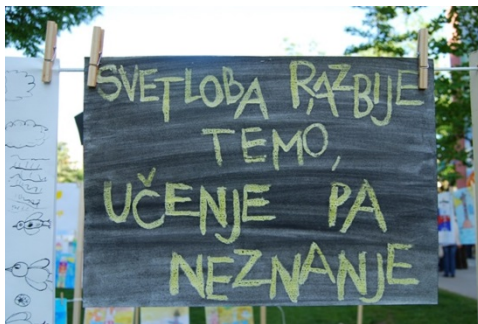 SVETLOBA RAZBIJE
TEMO,
UČENJE PA
NEZNANJE